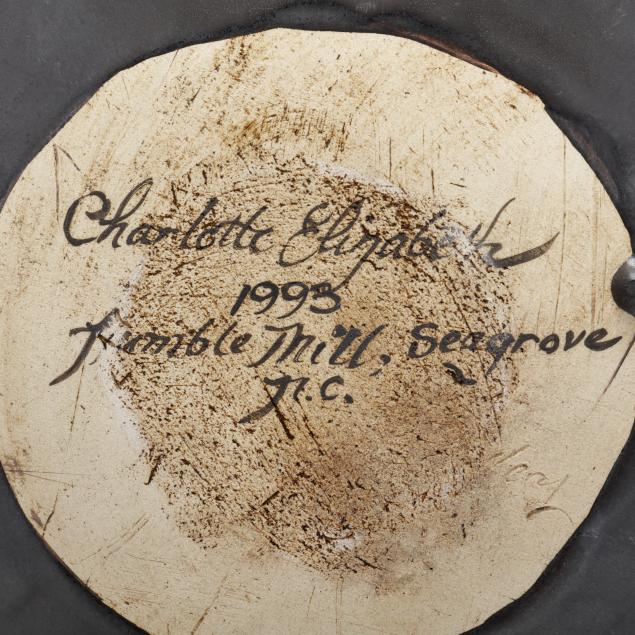 Charlotte Elizabeth
1993
Trimble Mill, Seagrove
N.C.